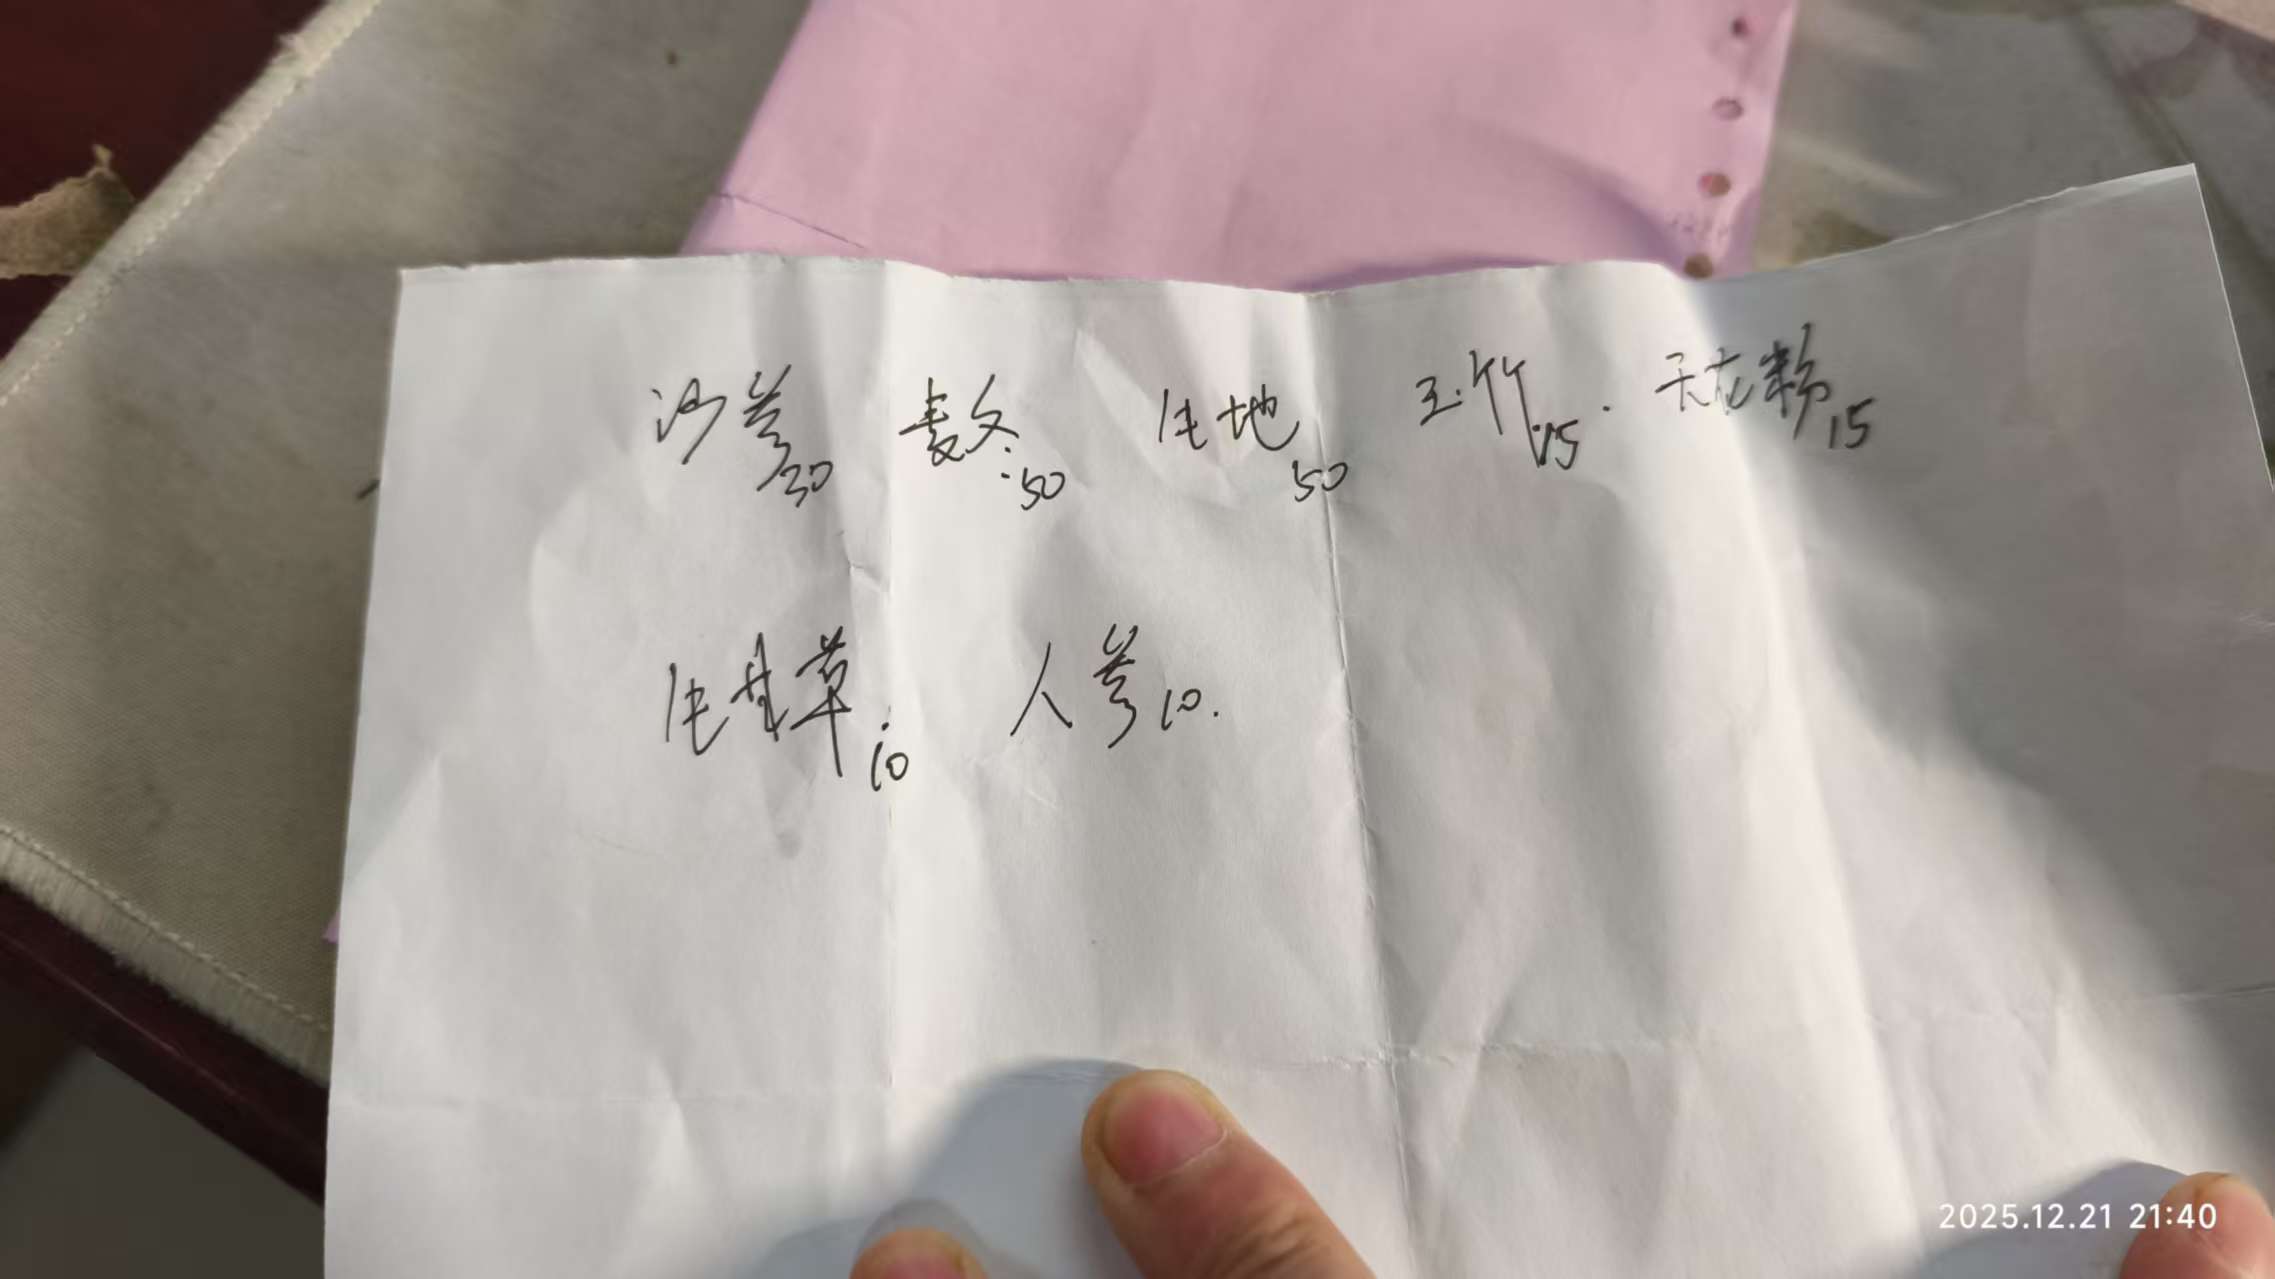 沙参30 麦冬:50 生地50 玉竹15. 天花粉15
生甘草.10 人参10.
2025.12.21 21:40